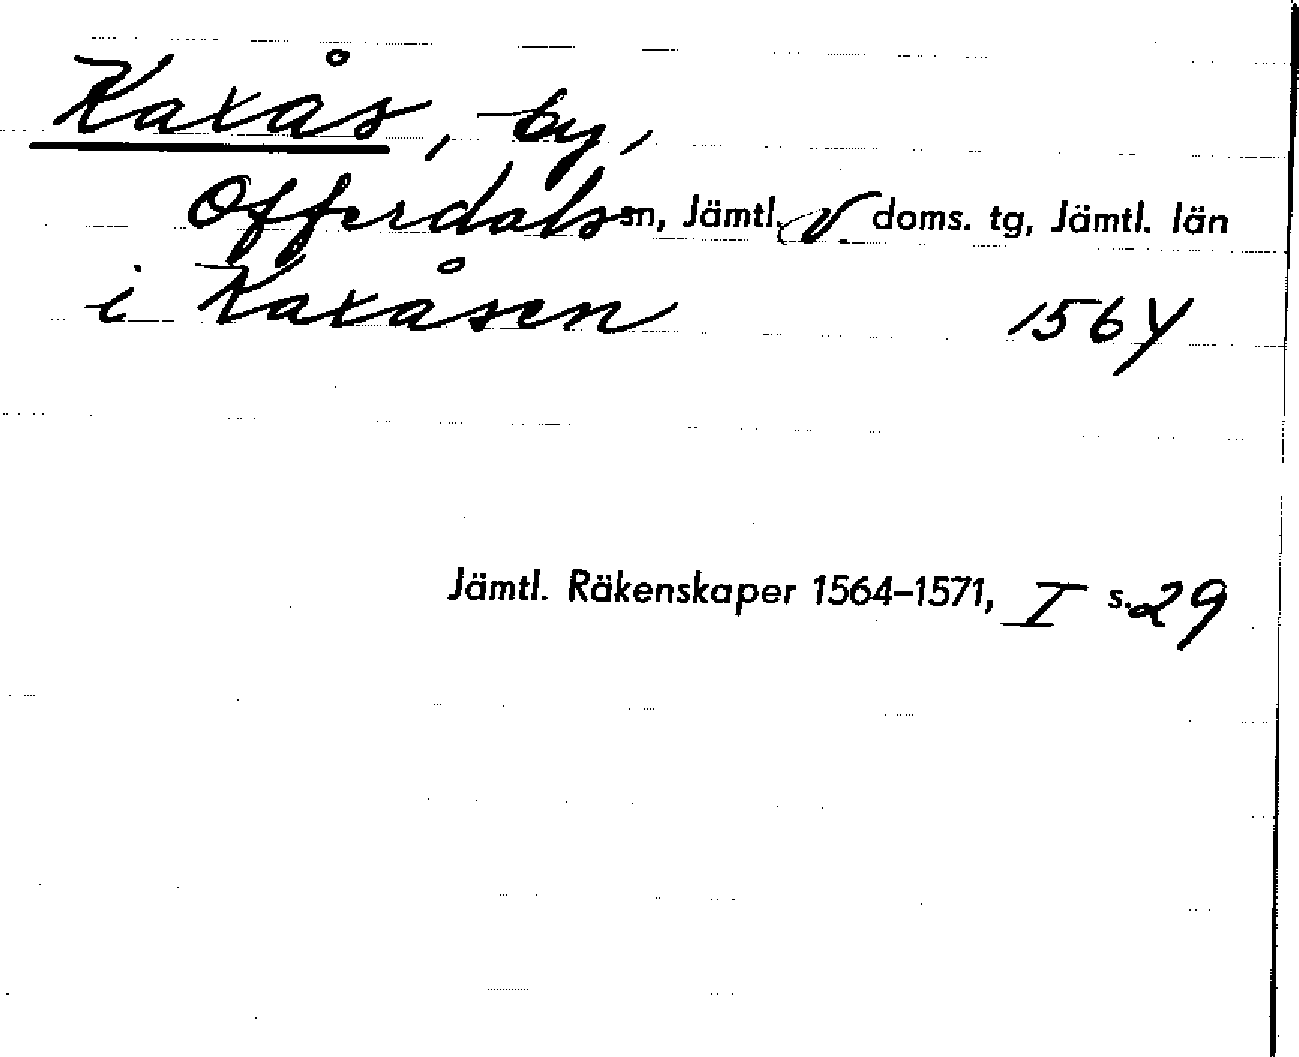 Kaxås, by,
Offerdals sn, Jämtl. V doms. tg, Jämtl. län
i Kaxåsen 1564
Jämtl. Räkenskaper 1564–1571, I s. 29